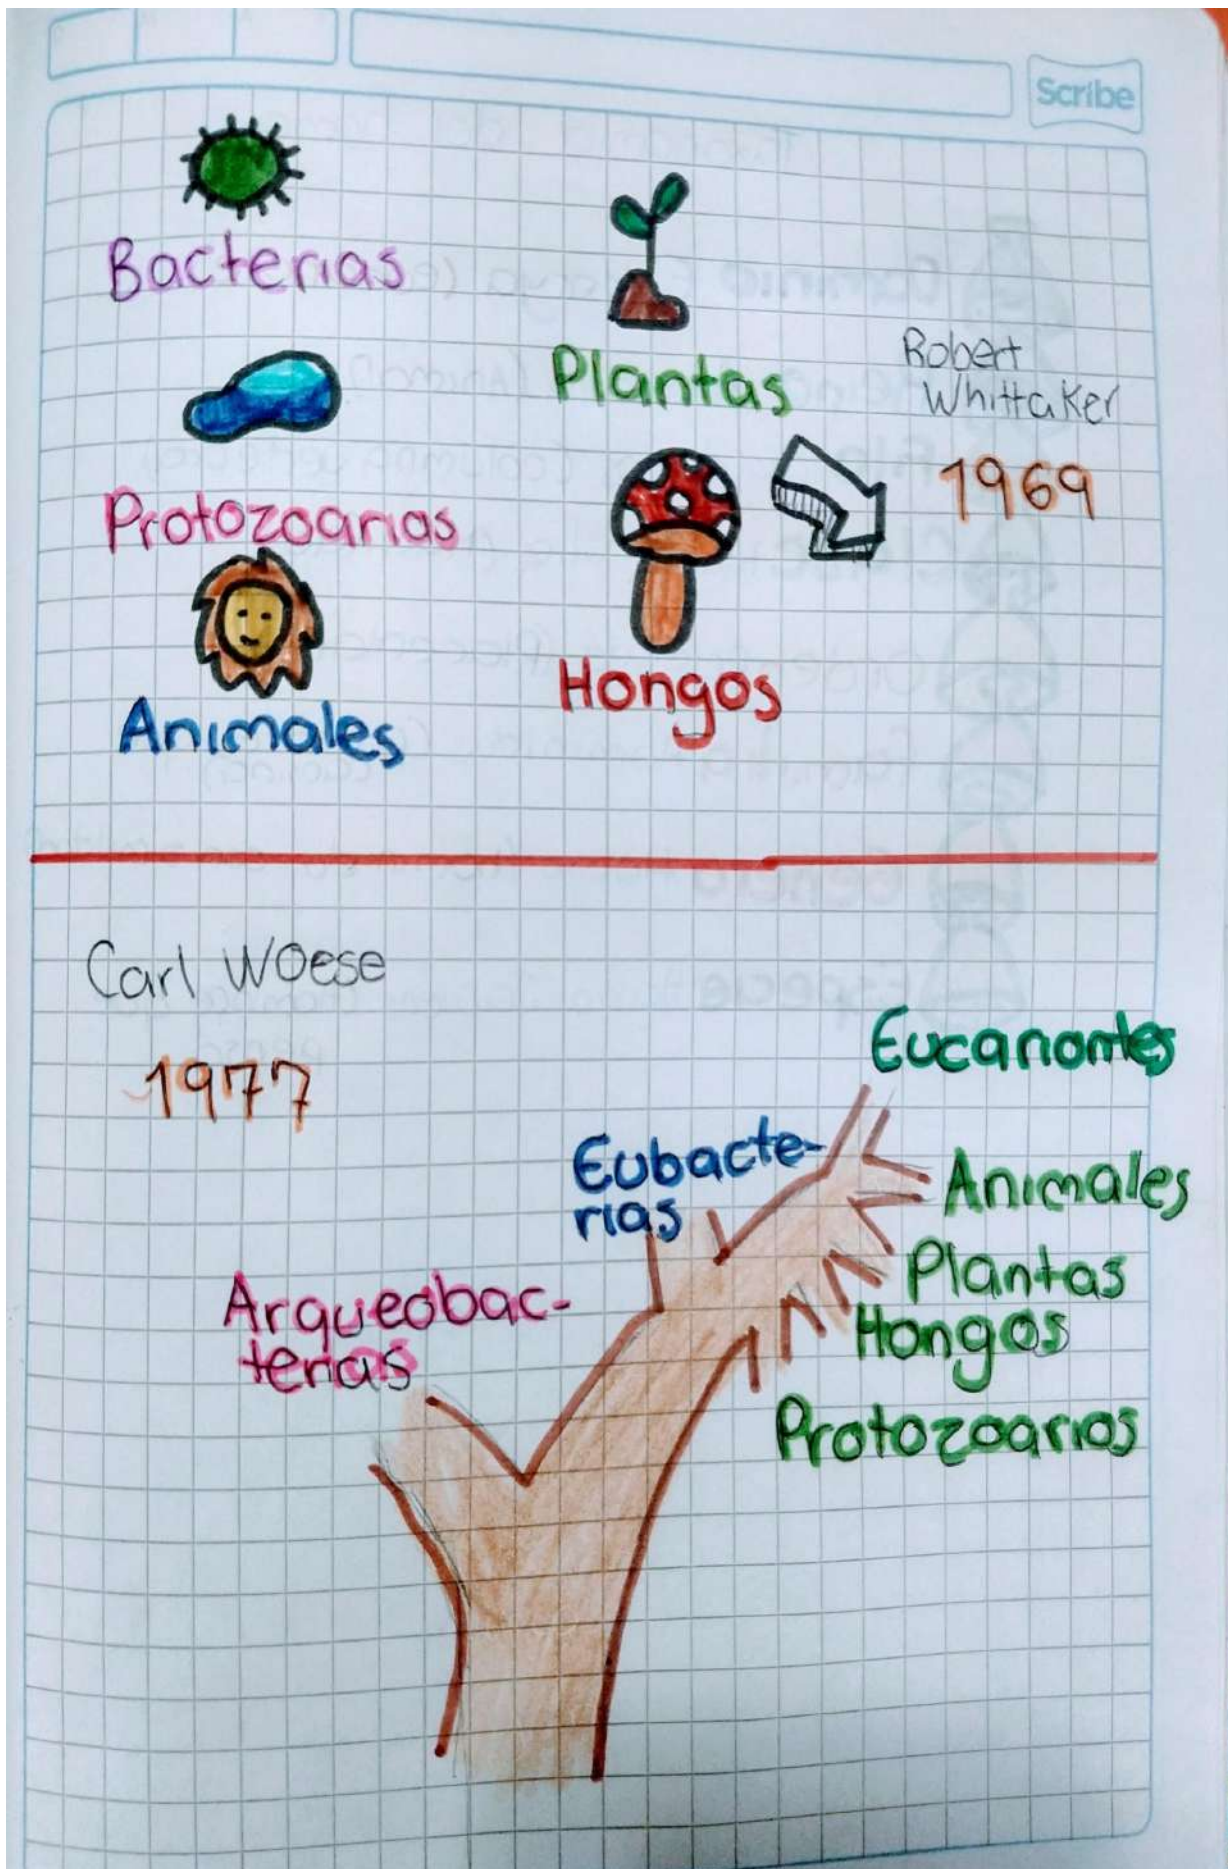 Scribe
Bacterias
Plantas
Robert
Whittaker
1969
Protozoarias
Hongos
Animales
Carl Woese
1977
Eucariontes
Eubacte-
rias
Animales
Arqueobac-
terias
Plantas
Hongos
Protozoarios